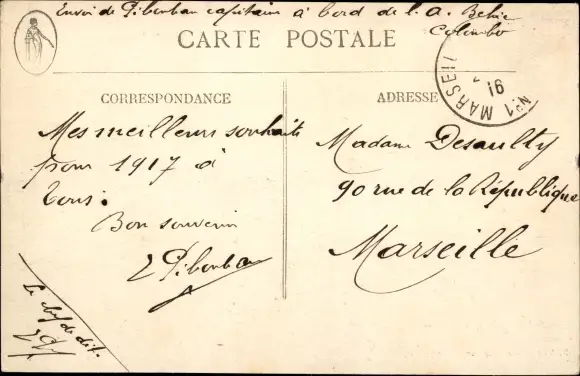 Envoi de Pibouban capitaine à bord de l. A. Behic
Colombo
CARTE POSTALE
No1 MARSEILL
16
CORRESPONDANCE
ADRESSE
Mes meilleurs souhaits
pour 1917 à
tous.
Bon souvenir
Madame Desaulty
90 rue de la République
Marseille
Le chef de dét.